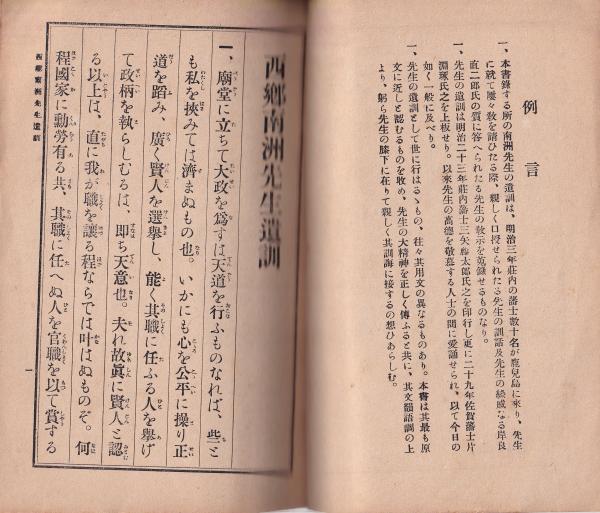 例言
一、本書錄する所の南洲先生の遺訓は、明治三年莊內の藩士數十名が鹿兒島に來り、先生
に就て屢々敎を請ひたる際、親しく口授せられたる先生の訓話及先生の緣戚なる岸良
眞二郎氏の質に答へられたる先生の敎示を蒐錄せるものなり。
一、先生の遺訓は明治二十三年莊內藩士三矢藤太郎氏之を印行し更に二十九年佐賀藩士片
淵琢氏之を上板せり。以來先生の高德を敬慕する人士の間に愛誦せられ、以て今日の
如く一般に及べり。
一、先生の遺訓として世に行はるゝもの、往々其用文の異なるものあり。本書は其最も原
文に近しと認むるものを收め、先生の大精神を正しく傳ふると共に、其文韻語調の上
より、躬ら先生の膝下に在りて親しく其訓誨に接するの想ひあらしむ。
西鄕南洲先生遺訓
一、廟堂に立ちて大政を爲すは天道を行ふものなれば、些と
も私を挾みては濟まぬもの也。いかにも心を公平に操り正
道を踏み、廣く賢人を選擧し、能く其職に任ふる人を擧げ
て政柄を執らしむるは、卽ち天意也。夫れ故眞に賢人と認
る以上は、直に我が職を讓る程ならでは叶はぬものぞ。何
程國家に勳勞有る共、其職に任へぬ人を官職を以て賞する
西鄕南洲先生遺訓
一